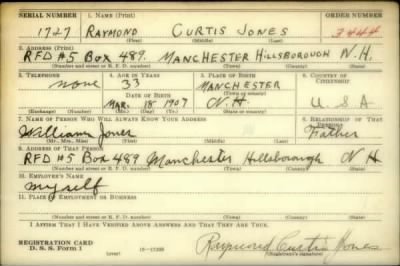 SERIAL NUMBER 1. NAME (Print) ORDER NUMBER
1727 RAYMOND CURTIS JONES 3444
(First) (Middle) (Last)
2. ADDRESS (Print)
RFD #5 Box 489 MANCHESTER HILLSBOROUGH N.H.
(Number and street or R. F. D. number) (Town) (County) (State)
3. TELEPHONE 4. AGE IN YEARS 5. PLACE OF BIRTH 6. COUNTRY OF CITIZENSHIP
none 33 MANCHESTER
DATE OF BIRTH (Town or county)
MAR. 18 1907 N.H. U.S.A
(Exchange) (Number) (Mo.) (Day) (Yr.) (State or country)
7. NAME OF PERSON WHO WILL ALWAYS KNOW YOUR ADDRESS 8. RELATIONSHIP OF THAT PERSON
William Jones Father
(Mr., Mrs., Miss) (First) (Middle) (Last)
9. ADDRESS OF THAT PERSON
RFD #5 Box 489 Manchester Hillsborough N H
(Number and street or R. F. D. number) (Town) (County) (State)
10. EMPLOYER'S NAME
myself
11. PLACE OF EMPLOYMENT OR BUSINESS
(Number and street or R. F. D. number) (Town) (County) (State)
I AFFIRM THAT I HAVE VERIFIED ABOVE ANSWERS AND THAT THEY ARE TRUE.
REGISTRATION CARD
D. S. S. Form 1 (over) Raymond Curtis Jones
(Registrant's signature)